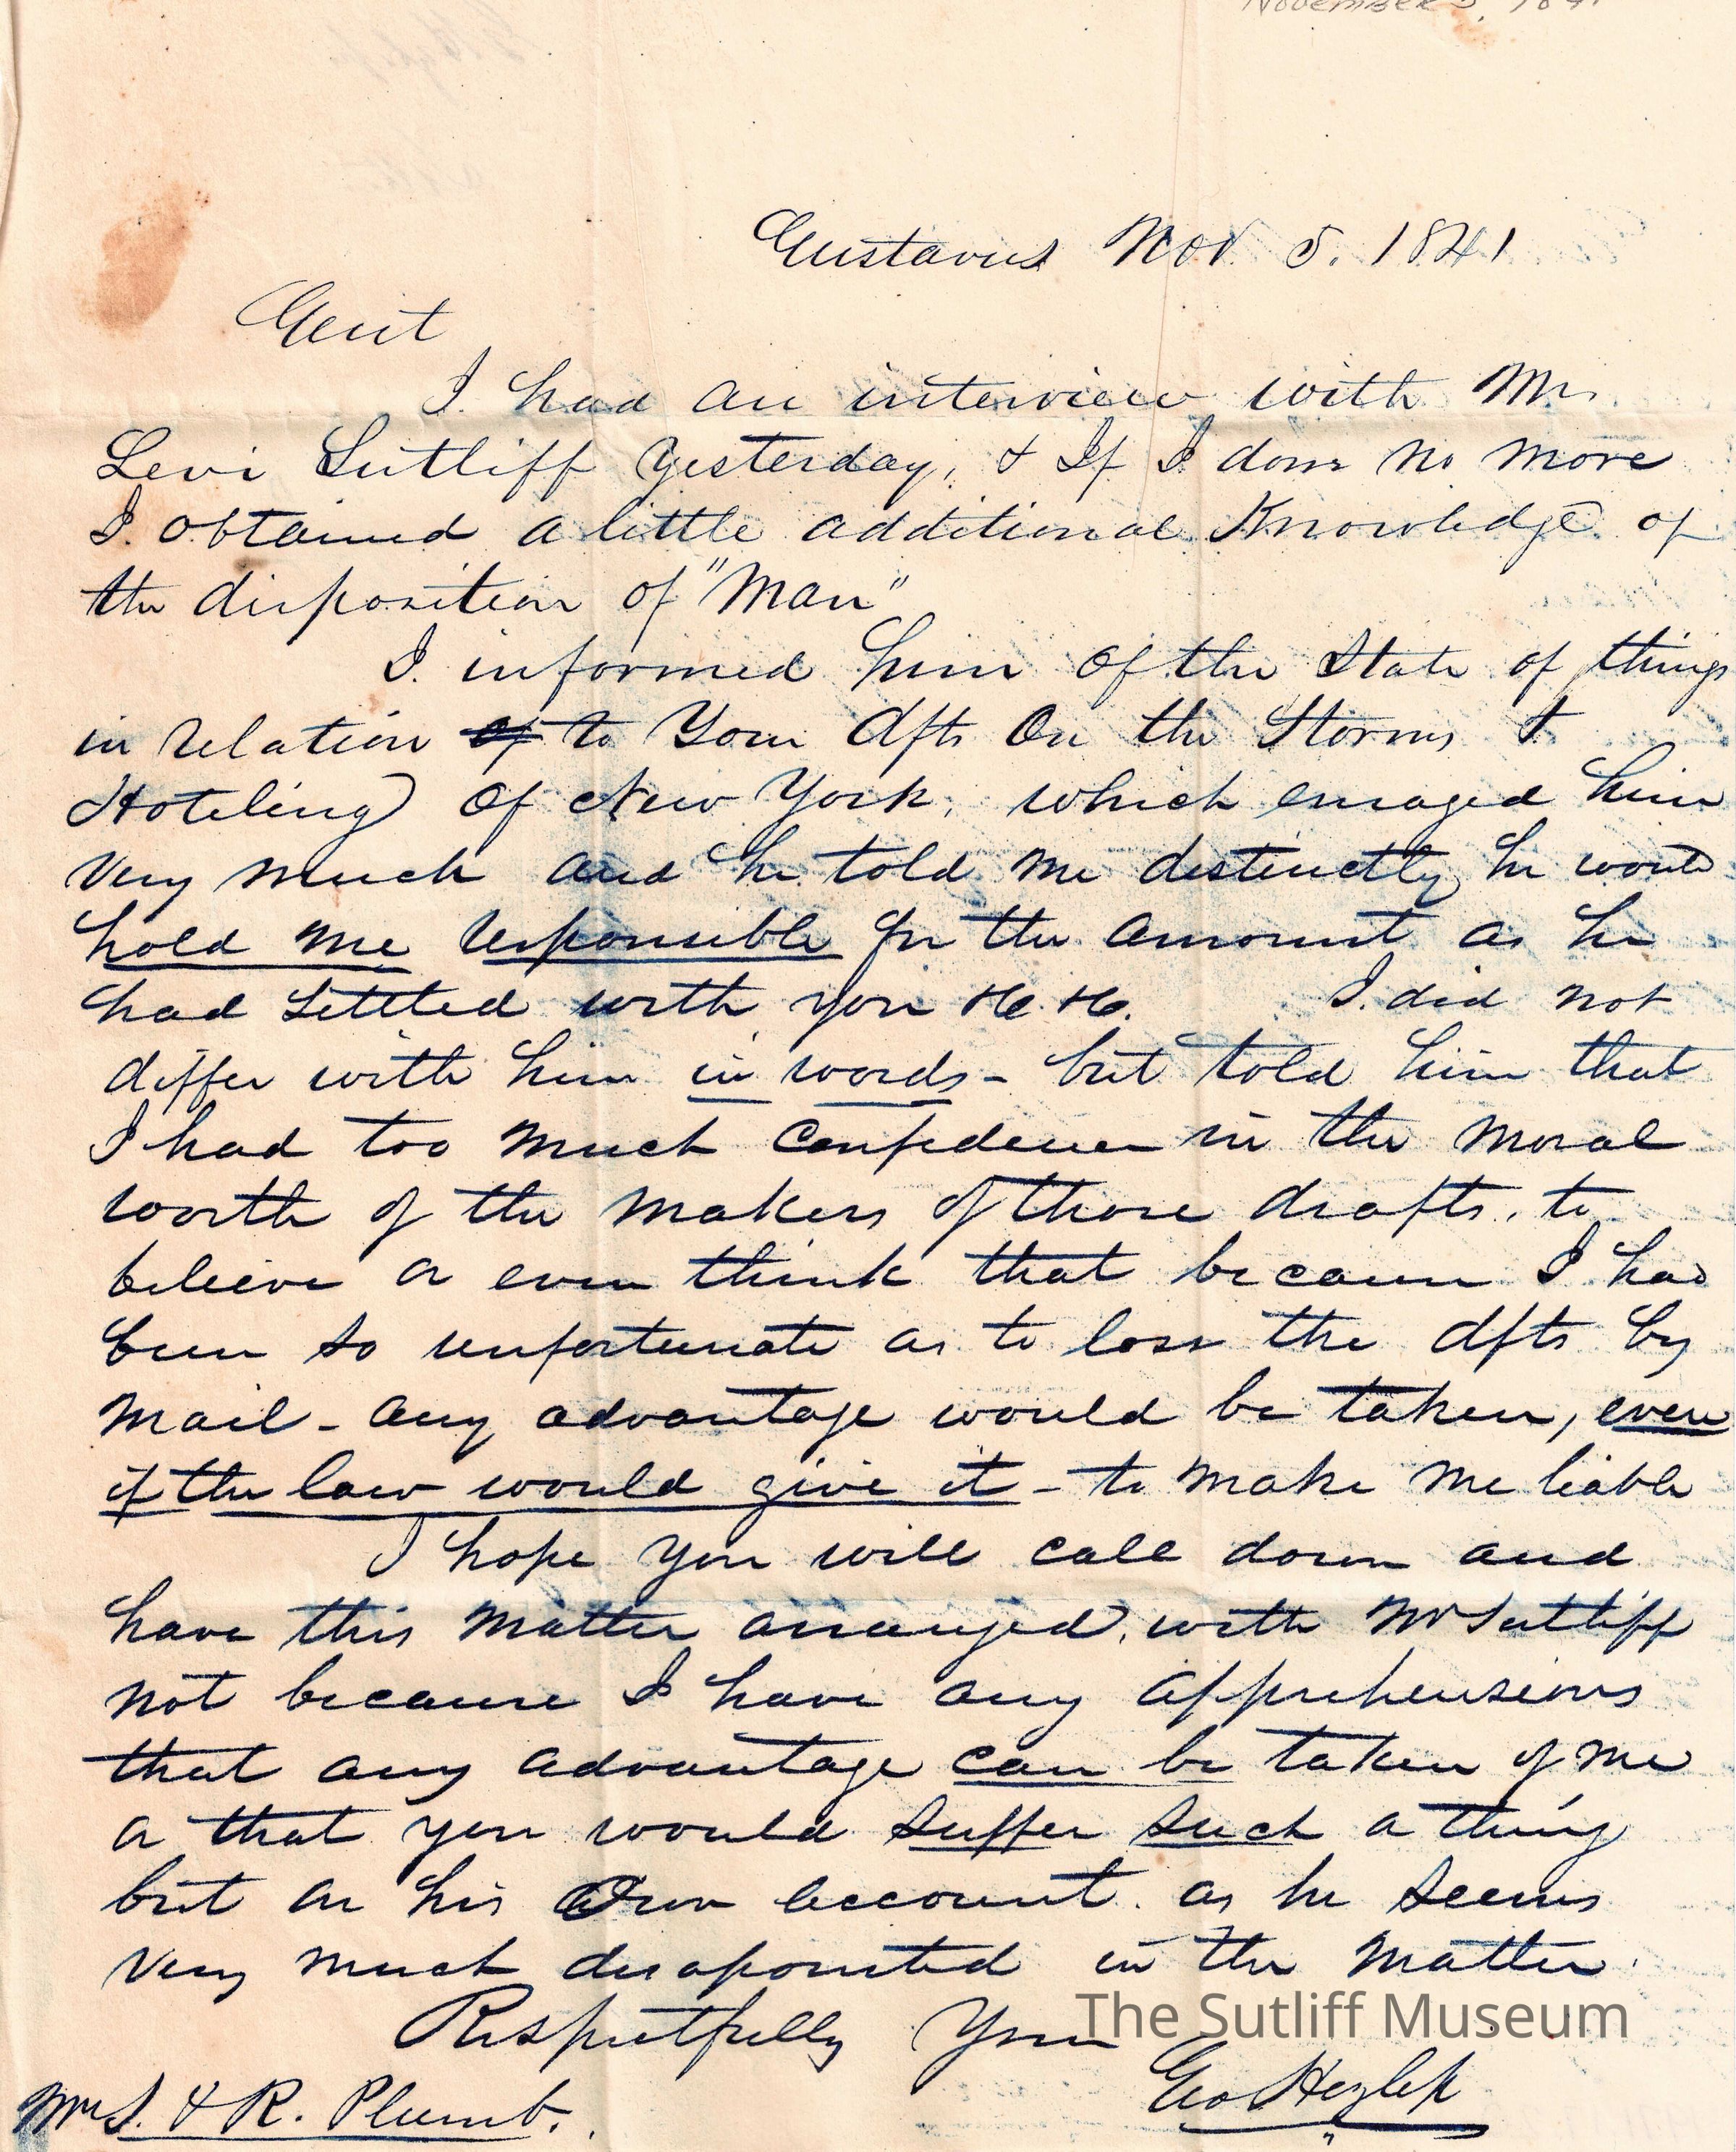 November 5, 184
Gustavus Nov. 5. 1841
Gent
I had an interview with Mr.
Levi Sutliff yesterday, & If I done no more
I obtained a little additional Knowledge of
the disposition of "Man"
I informed him of the State of things
in relation of to Your dfts On the Storms &
Hoteling of New York, which enraged him
very much and he told me distinctly he would
hold me responsible for the amount as he
had settled with you &c. &c. I did not
differ with him in words - but told him that
I had too much confidence in the moral
worth of the makers of those drafts, to
believe or even think that because I had
been so unfortunate as to loss the dfts by
mail - any advantage would be taken, even
if the law would give it - to make me liable
I hope you will call down and
have this matter arranged, with Mr Sutliff
not because I have any apprehensions
that any advantage can be taken of me
or that you would suffer such a thing
but on his Own account. as he seems
very much disapointed in the matter.
Respectfully Your
The Sutliff Museum
Geo Hezlep
Mrs S. & R. Plumb.